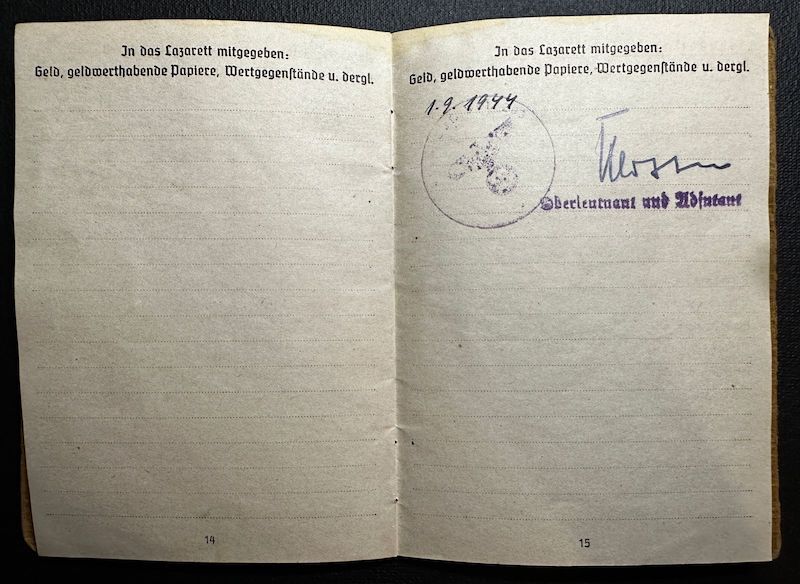 In das Lazarett mitgegeben:
Geld, geldwerthabende Papiere, Wertgegenstände u. dergl.
14
In das Lazarett mitgegeben:
Geld, geldwerthabende Papiere, Wertgegenstände u. dergl.
1.9.1944
Oberleutnant und Adjutant
15